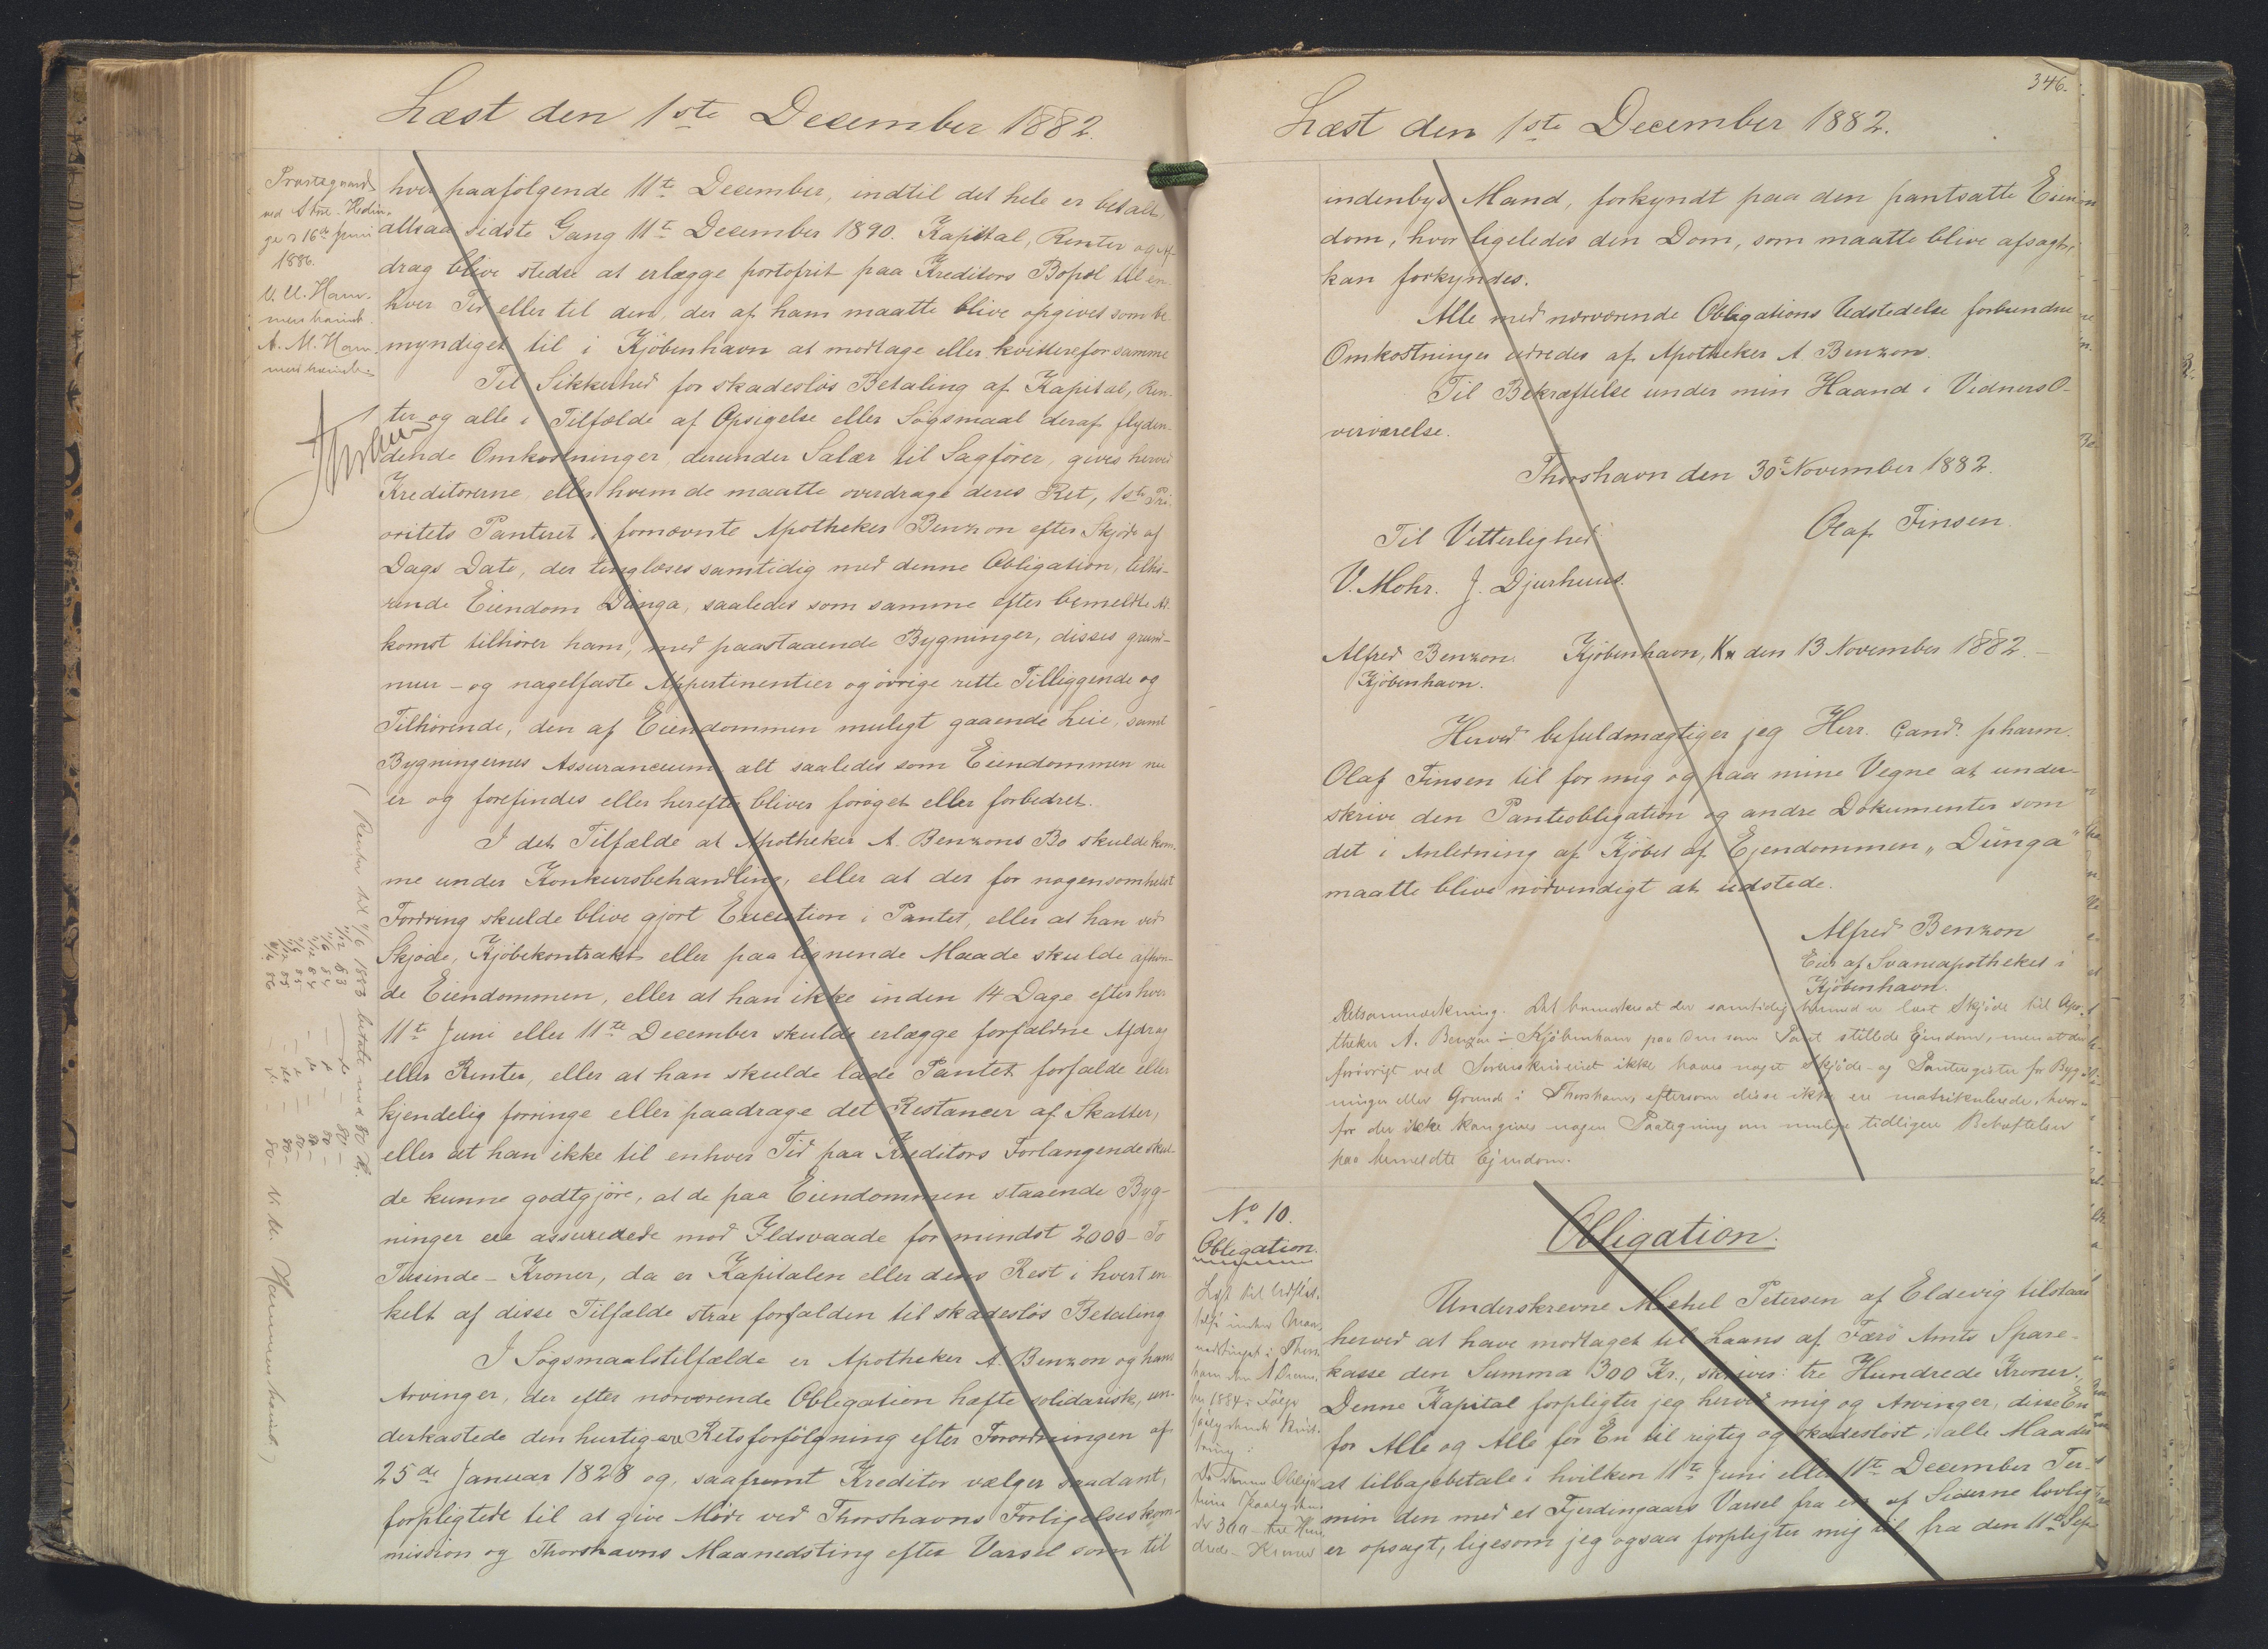 Læst den 1ste December 1882.
Præstegaard
ved Store-Hedin-
ge d 16de Juni
1886.
V. U. Ham-
mershaimb.
A. M. Ham-
mershaimb.
hver paafølgende 11te December, indtil det hele er betalt,
altsaa sidste Gang 11te December 1890. Kapital, Renter og Af-
drag blive stedse at erlægge portofrit paa Kreditors Bopæl til en-
hver Tid eller til den, der af ham maatte blive opgivet som be-
myndiget til i Kjöbenhavn at modtage eller kvittere for samme
Til Sikkerhed for skadeslös Betaling af Kapital, Ren-
ter og alle i Tilfælde af Opsigelse eller Sögsmaal deraf flyden-
dende Omkostninger, derunder Salær til Sagfører, gives herved
Kreditorerne, eller hvem de maatte overdrage deres Ret, 1ste Pri-
oritets Panteret i fornævnte Apotheker Benzon efter Skjøde af
Dags Dato, der tinglæses samtidig med denne Obligation, tilhö-
rende Eiendom Dúnga, saaledes som samme efter bemeldte Ad-
komst tilhører ham, med paastaaende Bygninger, disses grund-
mur- og nagelfaste Appertinentier og övrige rette Tilliggende og
Tilhörende, den af Eiendommen muligt gaaende Leie, samt
Bygningernes Assurancesum, alt saaledes som Eiendommen nu
er og forefindes eller herefter bliver forøget eller forbedret.
I det Tilfælde at Apotheker A. Benzons Bo skulde kom-
me under Konkursbehandling, eller at der for nogensomhelst
Fordring skulde blive gjort Execution i Pantet, eller at han ved
Skjøde, Kjöbekontrakt eller paa lignende Maade skulde afhæn-
de Eiendommen, eller at han ikke inden 14 Dage efter hver
11te Juni eller 11te December skulde erlægge forfaldne Afdrag
eller Renter, eller at han skulde lade Pantet forfalde eller
kjendelig forringe eller paadrage det Restancer af Skatter,
eller at han ikke til enhver Tid paa Kreditors Forlangende skul-
de kunne godtgjöre, at de paa Eiendommen staaende Byg-
ninger ere assurerede mod Ildsvaade for mindst 2000 - To
Tusinde - Kroner, da er Kapitalen eller dens Rest i hvert en-
kelt af disse Tilfælde strax forfalden til skadeslös Betaling
I Sögsmaalstilfælde er Apotheker A. Benzon og hans
Arvinger, der efter nærværende Obligation hæfte solidarisk, un-
derkastede den hurtigere Retsforfölgning efter Forordningen af
25de Januar 1828 og, saafremt Kreditor vælger saadant,
forpligtede til at give Møde ved Thorshavns Forligelseskom-
mission og Thorshavns Maanedsting efter Varsel som til
(Renter til 11/6 1883 betalt med 80 Kr.
11/12 83 — do — 80 -
11/6 84 — do — 80 -
11/12 84 — do — 80 -
11/6 85 — do — 80 -
11/12 85 — do — 80 -
11/6 86 — do — 80 - V. U. Hammershaimb)
346.
Læst den 1ste December 1882.
indenbys Mand, forkyndt paa den pantsatte Eien-
dom, hvor ligeledes den Dom, som maatte blive afsagt,
kan forkyndes.
Alle med nærværende Obligations Udstedelse forbundne
Omkostninger udredes af Apotheker A. Benzon.
Til Bekræftelse under min Haand i Vidners O-
verværelse.
Thorshavn den 30te November 1882.
Olaf Finsen.
Til Vitterlighed
V. Mohr. J. Djurhuus.
Alfred Benzon. Kjöbenhavn, K den 13 November 1882.-
Kjöbenhavn.
Herved befuldmægtiger jeg Herr. Cand. pharm.
Olaf Finsen til for mig og paa mine Vegne at under-
skrive den Panteobligation og andre Dokumenter som
det i Anledning af Kjöbet af Ejendommen „Dúnga"
maatte blive nödvendigt at udstede.
Alfred Benzon
Eier af Svaneapotheket i
Kjöbenhavn.
Retsanmærkning. Det bemærkes at der samtidig hermed er læst Skjøde til Apo-
theker A. Benzon i Kjöbenhavn paa den som Pant stillede Ejendom, men at der
foriövrigt ved Sorenskriveriet ikke haves noget Skjøde- og Panteregister for Byg-
ninger eller Grunde i Thorshavn, eftersom disse ikke ere matrikulerede, hvor-
for der ikke kan gives nogen Paategning om mulige tidligere Behæftelser
paa bemeldte Ejendom.
No 10.
Obligation.
Læst til Udslet-
telse inden Maa-
nedstinget i Thors-
havn den 1 Decem-
ber 1884 i Følge
saalydende Kvit-
tering:
Da denne Obliga-
tions Paalyden-
de 300 - tre Hun-
drede - Kroner
Obligation.
Underskrevne Michel Petersen af Eldevig tilstaar
herved at have modtaget til Laans af Færö Amts Spare-
kasse den Summa 300 Kr., skriver: tre Hundrede Kroner.
Denne Kapital forpligter jeg herved mig og Arvinger, disse En
for Alle og Alle for En til rigtig og skadesløst i alle Maader
at tilbagebetale i hvilken 11te Juni eller 11te December Ter-
min den med et Fjerdingaars Varsel fra en af Siderne lovlig
er opsagt, ligesom jeg ogsaa forpligter mig til fra den 11te Sep-